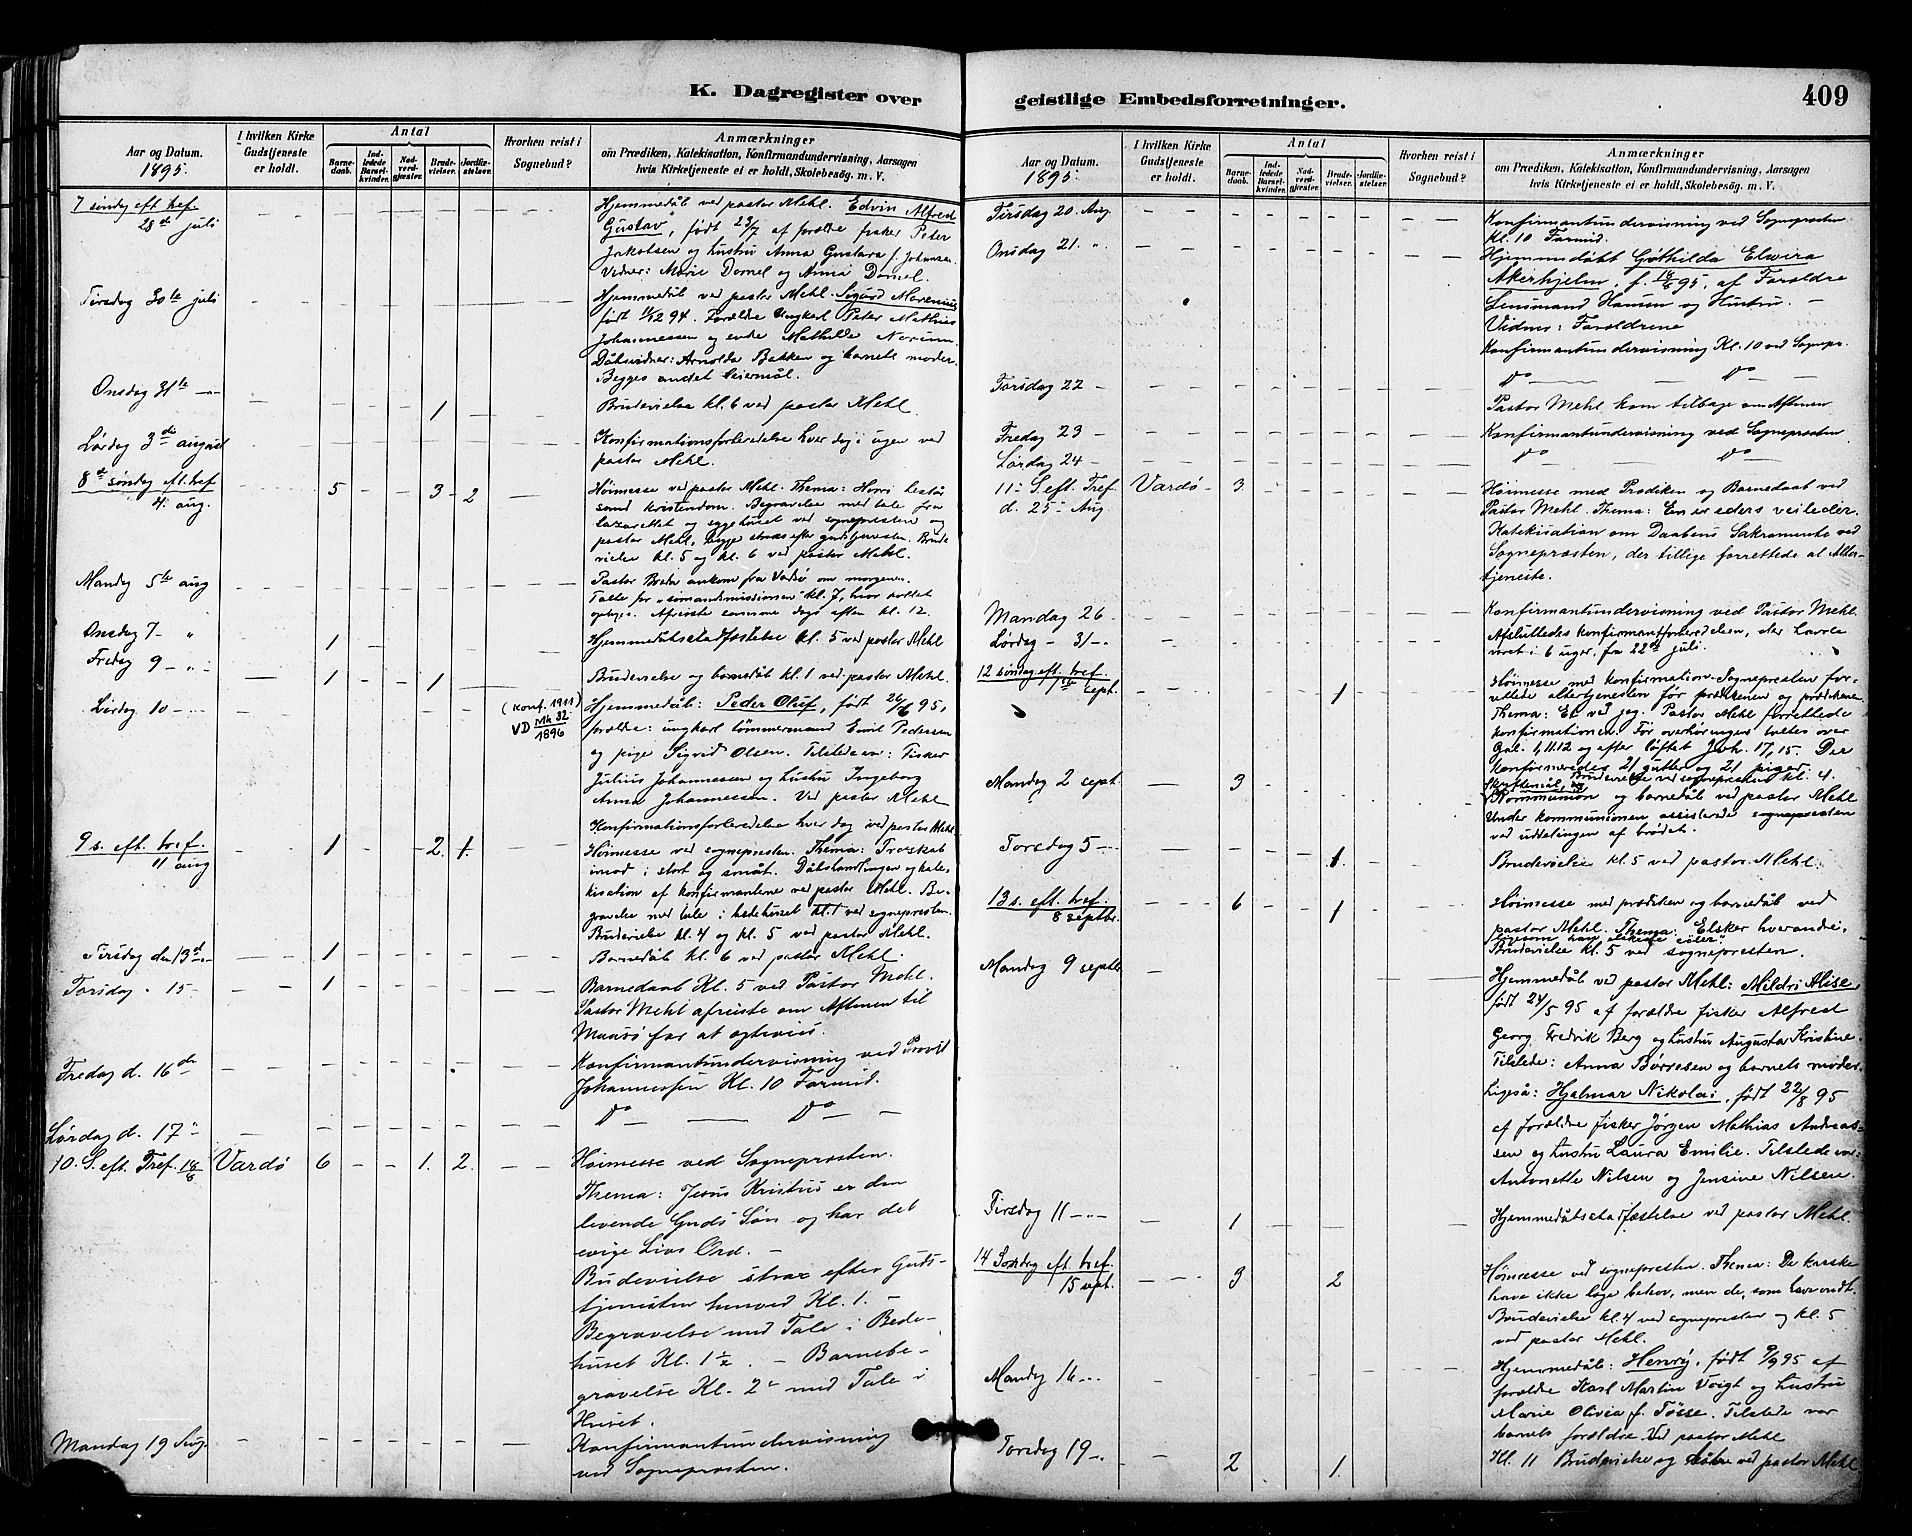 K. Dagregister over
Aar og Datum.
1895.
I hvilken Kirke
Gudstjeneste
er holdt.
Antal
Barne-
daab.
Ind-
ledede
Barsel-
kvinder.
Nad-
verd-
gjæster.
Brude-
vielser.
Jordfæ-
stelser.
Hvorhen reist i
Sognebud?
Anmærkninger
om Prædiken, Katekisation, Konfirmandundervisning, Aarsagen
hvis Kirketjeneste ei er holdt, Skolebesøg. m. V.
7 søndag eft. tref.
28de juli
Hjemmedåb ved pastor Mehl. Edvin Alfred
Gustav, født 23/7 af forældre fisker Peter
Jakobsen og hustru Anna Gustava f. Johansen.
Vidner: Marie Dornel og Anna Dornel.
Tirsdag 30te juli
Hjemmedåb ved pastor Mehl. Sigurd Marenius
født 1/12 94. Forældre Ungkarl Peter Mathias
Johannessen og enke Mathilde Norum.
Dåbsvidner: Arnolda Bakken og barnets moder.
Begges andet leiermål.
Onsdag 31te -"-
1
Brudevielse kl. 6 ved pastor Mehl.
Lørdag 3die august
Konfirmationsforberedelse hver dag i ugen ved
pastor Mehl.
8de søndag eft. tref
4. aug.
5 3 2
Høimesse ved pastor Mehl. Thema: Hvori består
sand kristendom. Begravelse med tale fra
lazarettet og sygehuset ved sognepresten og
pastor Mehl, begge straks efter gudstjenesten. Brude
vielse kl. 5 og kl. 6 ved pastor Mehl.
Mandag 5te aug
Pastor ankom fra Vadsø om morgenen.
Talte for "sømandsmissionen" kl. 7, hvor
Afreiste samme dags aften kl. 12.
Onsdag 7 - "
1
Hjemmedåbsstadfæstelse kl. 5 ved pastor Mehl
Fredag 9 - " -
1 1
Brudevielse og barnedåb kl. 1 ved pastor Mehl.
Lørdag 10 -
(Konf. 1911)
VD Mk 32
1896
Hjemmedåb: Peder Oluf, født 26/6 95,
forældre: ungkarl tømmermand Emil Pedersen
og pige Sigrid Olsen. Tilstede var: Fisker
Julius Johannessen og hustru Ingeborg
Anna Johannessen. Ved pastor Mehl
Konfirmationsforberedelse hver dag ved pastor Mehl.
9 s. eft. tref.
11 aug
1 2 1.
Høimesse ved sognepresten. Thema: Troskab
imod i stort og småt. Dåbshandlingen og kate-
kisation af konfirmanterne ved pastor Mehl. Be-
gravelse med tale i bedehuset kl. 1 ved sognepresten.
Brudevielse kl. 4 og kl. 5 ved pastor Mehl.
Tirsdag den 13de
1
Barnedåb kl. 6 ved pastor Mehl.
Torsdag - 15 -
1
Barnedaab Kl. 5 ved Pastor Mehl.
Pastor Mehl afreiste om Aftenen til
Maasø for at ogtevies.
Fredag d. 16de
Konfirmantundervisning ved Provst
Johannessen Kl. 10 Formid.
Lørdag d. 17"
Do — Do —
10. S. eft. Tref. 18/8
Vardø
6 1. 2.
Høimesse ved Sognepræsten.
Thema: Jesus Kristus er den
levende Guds Søn og har det
evige Livs Ord. -
Budevielse strax efter Guds-
tjenesten henved Kl. 1. -
Begravelse med Tale i Bede-
huset Kl. 1½. - Barnebe-
gravelse Kl. 2 med Tale i
Huset.
Mandag 19 Aug.
Konfirmantundervisning
ved Sognepræsten.
geistlige Embedsforretninger.
409
Aar og Datum.
1895.
I hvilken Kirke
Gudstjeneste
er holdt.
Antal
Barne-
daab.
Ind-
ledede
Barsel-
kvinder.
Nad-
verd-
gjæster.
Brude-
vielser.
Jordfæ-
stelser.
Hvorhen reist i
Sognebud?
Anmærkninger
om Prædiken, Katekisation, Konfirmandundervisning, Aarsagen
hvis Kirketjeneste ei er holdt, Skolebesøg. m. V.
Tirsdag 20. Aug.
Konfirmantundervisning ved Sognepræsten
Kl. 10 Formid.
Onsdag 21. "
Hjemmedøbt Gøthilda Elvira
Akerhjelm, f. 18/6 95, af Forældre
Lensmand Hansen og Hustru. -
Vidner: Forældrene
Konfirmantundervisning Kl. 10 ved Sognepr.
Torsdag 22 -
Do — Do
Pastor Mehl kom tilbage om Aftenen
Fredag 23 -
Konfirmantundervisning ved Sognepræsten
Lørdag 24 -
Do Do
11- S. eft. Tref.
d. 25 - Aug.
Vardø
3
Høimesse med Prædiken og Barnedaab ved
Pastor Mehl. Thema: En er eders veileder.
Katekisation om Daabens Sakramente ved
Sognepræsten, der tillige forrettede al Alter-
tjeneste.
Mandag 26
Konfirmantundervisning ved Pastor Mehl.
Lørdag - 31 -
Afsluttedes konfirmantforberedelsen, der havde
varet i 6 uger, fra 22de juli.
12 søndag eft. tref.
1ste sept.
1
Høimesse med konfirmation. Sognepresten for-
rettede altertjenesten før prædikenen og prædikene
Thema: Et ved jeg. Pastor Mehl forrettede
konfirmationen. Før overhøringen taltes over
Gal. 1, 11.12 og efter løftet Joh. 17, 15. Der
konfirmeredes 21 gutter og 21 piger
Brudevielse ved sognepresten kl. 4.
Mandag 2 sept.
3
Skriftemål, og
Kommunion og barnedåb ved pastor Mehl
Under kommunionen assisterede sognepresten
ved uddelingen af brødet.
Torsdag 5 -
1.
Brudevielse kl. 5 ved pastor Mehl.
13 s. eft. tref.
8 septbr.
6 1
Høimesse med prædiken og barnedåb ved
pastor Mehl. Thema: Elsker hverandre,
ligesom jeg elskede eder".
Brudevielse kl. 5 ved sognepresten.
Mandag 9 septbr
Hjemmedåb ved pastor Mehl: Mildri Alise,
født 24/5 95 af forældre fisker Alfred
Georg Fredrik Berg og hustru Augusta Kristine.
Tilstede: Anna Børresen og barnets moder.
Ligeså: Hjalmar Nikolai, født 22/8 95
af forældre fisker Jørgen Mathias Andreas-
sen og hustru Laura Emilie. Tilstede var:
Antonette Nilsen og Jensine Nilsen.
Tirsdag 11 -"-
1
Hjemmedåbsstadfæstelse ved pastor Mehl.
14 Søndag eft. tref.
15 sept.
3 2
Høimesse ved sognepresten. Thema: De karske
have ikke læge behov, men de, som have ondt.
Brudevielse kl. 4 ved sognepresten og kl. 5
ved pastor Mehl.
Mandag 16 -"-
Hjemmedåb: Henry, født 9/9 95 af
forældre Karl Martin Voigt og hustru
Marie Olivia f. Tøsse. Tilstede var
barnets forældre. Ved pastor Mehl
Torsdag 19 -.
2 1.
Kl. 11 Brudevielse og dåb ved pastor Mehl.